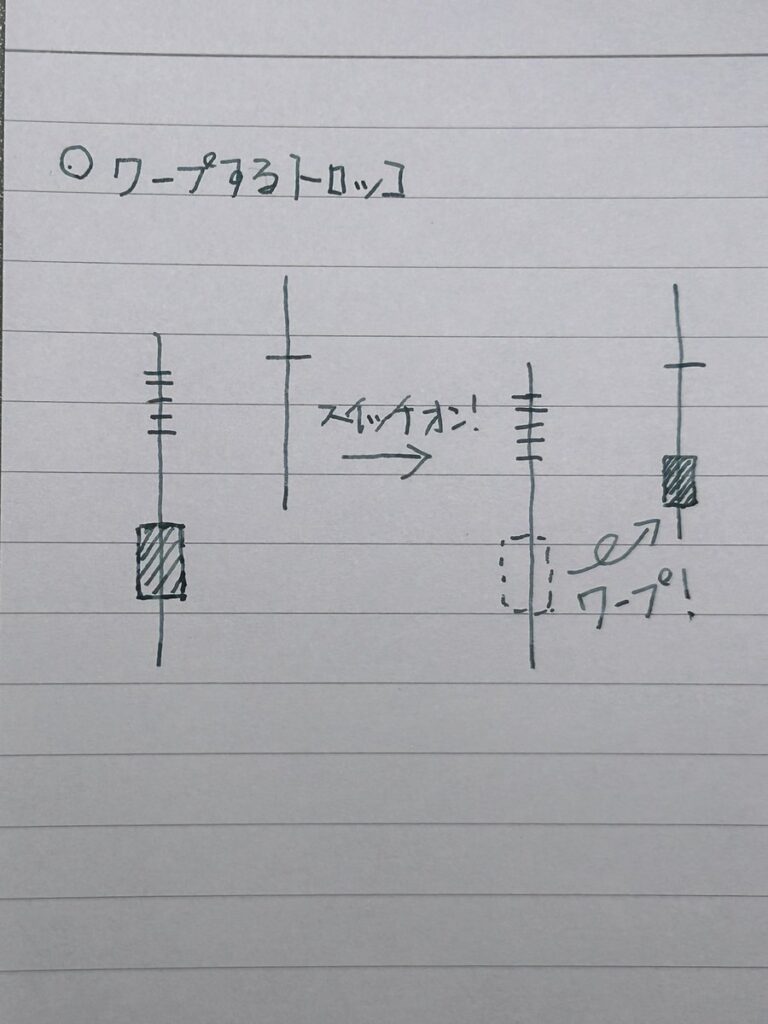 ○ワープするトロッコ
スイッチオン!
ワープ!